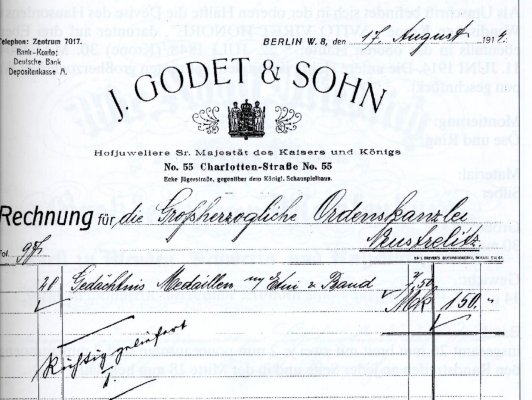 Telephon: Zentrum 7017.
Bank-Konto:
Deutsche Bank
Depositenkasse A.
BERLIN W. 8, den 17. August 1914.
J. GODET & SOHN
Hofjuweliere Sr. Majestät des Kaisers und Königs
No. 55 Charlotten-Straße No. 55
Ecke Jägerstraße, gegenüber dem Königl. Schauspielhaus.
Rechnung für die Großherzogliche Ordenskanzlei
Neustrelitz.
Fol.
20 Gedächtnis Medaillen m/ Etui & Band 7,50
Mk 150.-
Richtig geliefert